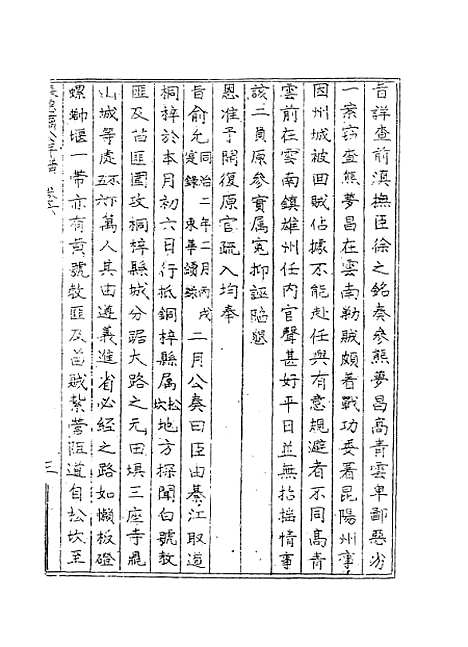 旨詳查前滇撫臣徐之銘奏參熊夢昌高青雲卑鄙惡劣
一案窃查熊夢昌在雲南勒賊頗著戰功委署昆陽州事
因州城被回賊佔據不能赴任與有意規避者不同高青
雲前在雲南鎮雄州任内官聲甚好平日並無招搖情事
該二員原參實属冤抑誣陷懇
恩准予開復原官疏入均奉
旨俞允同治二年二月丙戌東華續錄二月公奏曰臣由綦江取道
桐梓於本月初六日行抵銅梓縣属松坎地方探聞白號教
匪及苗匪圍攻桐梓縣城分踞大路之元田垻三座寺飛
山城等處不下五六萬人其由遵義進省必經之路如懶板磴
螺螄堰一帶亦有黄號教匪及苗賊紮營阻道自松坎至
三